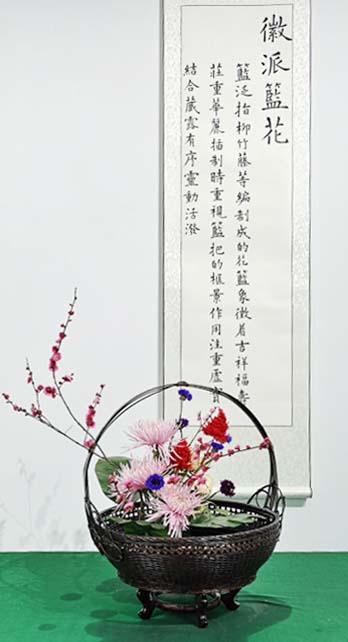 徽派籃花
籃泛指柳竹藤等編制成的花籃象徵着吉祥福壽
莊重華麗插制時重視籃把的框景作用注重虛實
結合藏露有序靈動活潑